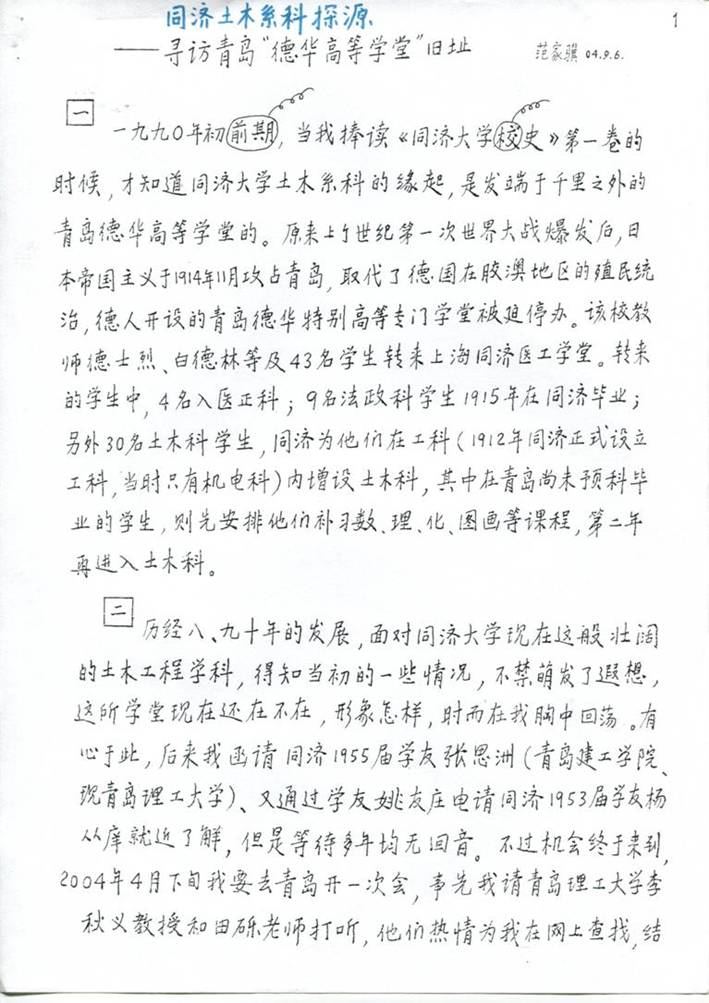 同济土木系科探源
1
——寻访青岛“德华高等学堂”旧址
范家骥 04.9.6.
一
一九九〇年初前期，当我捧读《同济大学校史》第一卷的
时候，才知道同济大学土木系科的缘起，是发端于千里之外的
青岛德华高等学堂的。原来上个世纪第一次世界大战爆发后，日
本帝国主义于1914年11月攻占青岛，取代了德国在胶澳地区的殖民统
治，德人开设的青岛德华特别高等专门学堂被迫停办。该校教
师德士烈、白德林等及43名学生转来上海同济医工学堂。转来
的学生中，4名入医正科；9名法政科学生1915年在同济毕业；
另外30名土木科学生，同济为他们在工科（1912年同济正式设立
工科，当时只有机电科）内增设土木科，其中在青岛尚未预科毕
业的学生，则先安排他们补习数、理、化、图画等课程，第二年
再进入土木科。
二
历经八、九十年的发展，面对同济大学现在这般壮阔
的土木工程学科，得知当初的一些情况，不禁萌发了遐想，
这所学堂现在还在不在，形象怎样，时而在我胸中回荡。有
心于此，后来我函请同济1955届学友张思洲（青岛建工学院、
现青岛理工大学）、又通过学友姚友庄电请同济1953届学友杨
从庠就近了解，但是等待多年均无回音。不过机会终于来到，
2004年4月下旬我要去青岛开一次会，事先我请青岛理工大学李
秋义教授和田砾老师打听，他们热情为我在网上查找，结